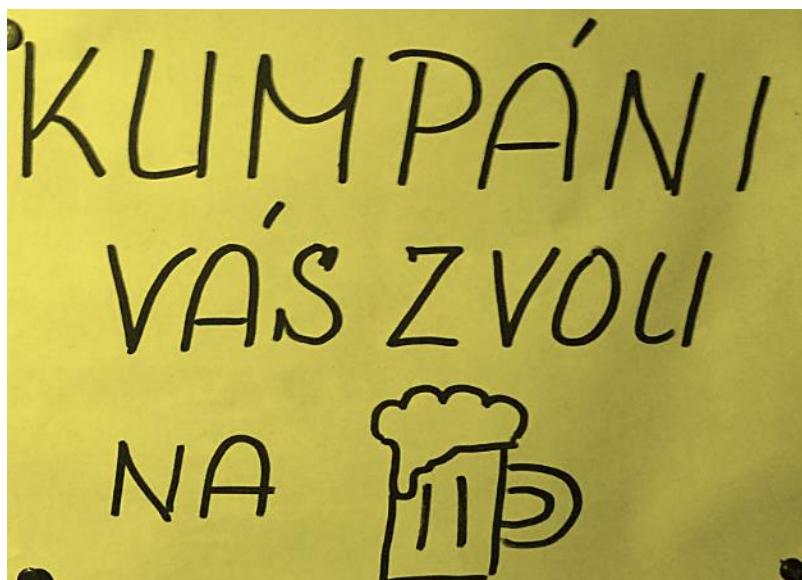 KUMPÁNI
VÁS ZVOLI
NA